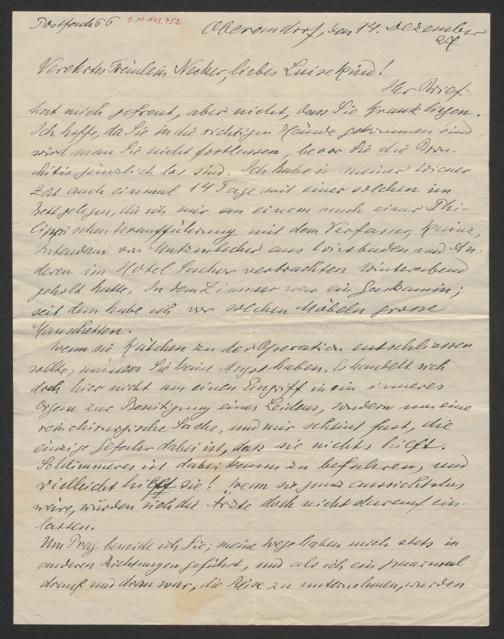 Postfach 66 I.N. 143.752 Oberarndorf, den 14. Dezember
27
Verehrtes Fräulein Necker, liebes Luisekind!
Ihr Brief
hat mich gefreut, aber nicht, dass Sie krank liegen.
Ich hoffe, da Sie in die richtigen Hände gekommen sind
wird man Sie nicht fortlassen, bevor Sie die Bron
chitis gänzlich los sind. Ich habe in meiner Wiener
Zeit auch einmal 14 Tage mit einer solchen im
Bett gelegen, die ich mir an einem nach einer Phi-
lippischen Uraufführung mit dem Verfasser,
Intendant von Mutzenbecher aus Wiesbaden und An-
deren im Hotel Sacher verbrachten Winterabend
geholt hatte. In dem Zimmer war ein Gaskamin;
seitdem habe ich vor solchen Möbeln grosse
Manschetten.
Wenn sie Käthchen zu der Operation entschliessen
sollte, müssen Sie keine Angst haben. Es handelt sich
doch hier nicht um einen Eingriff in ein inneres
Organ zur Beseitigung eines Leidens, sondern um eine
rein chirurgische Sache, und mir scheint fast, die
einzige Gefahr dabei ist, dass sie nichts hilft.
Schlimmeres ist dabei kaum zu befürchten, und
vielleicht hilft sie! Wenn sie ganz aussichtslos
wäre, würden sich die Ärzte doch nicht darauf ein-
lassen.
Um Prag beneide ich Sie; meine Wege haben mich stets in
anderen Richtungen geführt, und als ich ein paarmal
drauf und dran war, die Reise zu unternehmen, wurden